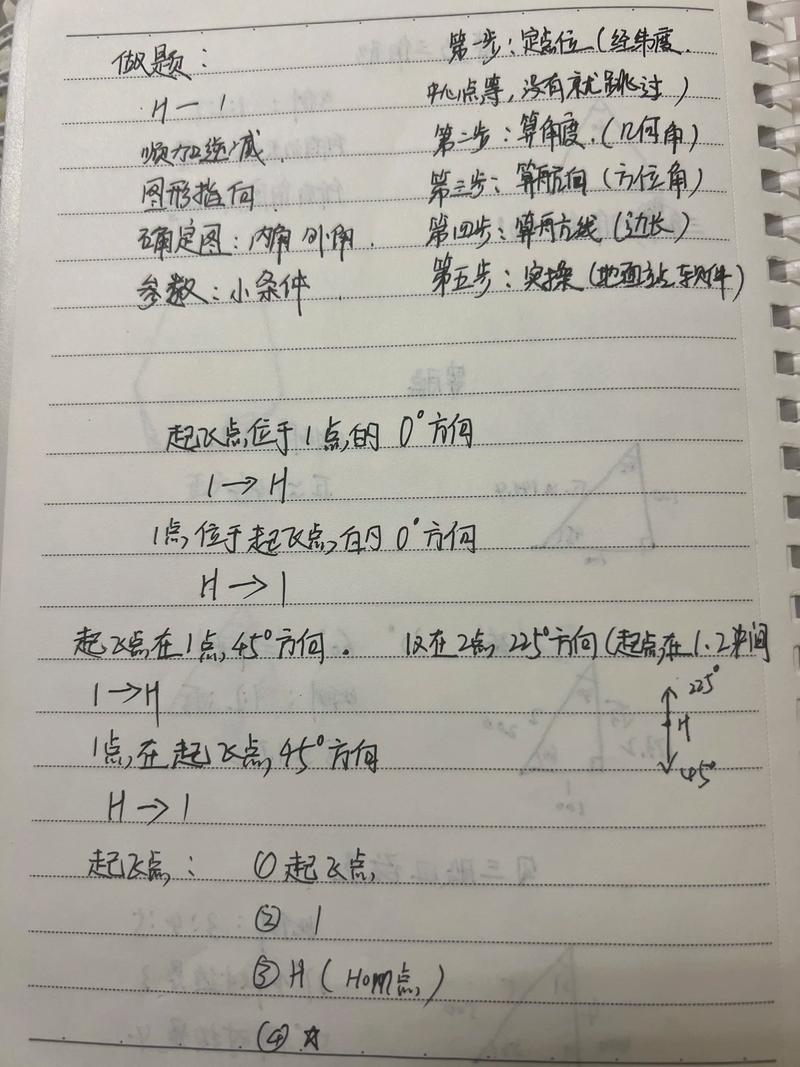 做题：
H — 1
顺加逆减
图形指向
确定图：内角 外角
参数：小条件
第一步：定点位（经纬度
中心点等，没有就跳过）
第二步：算角度（几何角）
第三步：算航向（方位角）
第四步：算两点线（边长）
第五步：实操（地面站软件）
起飞点位于1点的 0°方向
1 → H
1点位于起飞点的 0°方向
H → 1
起飞点在1点45°方向． 仅在2点225°方向（起点在1.2中间
1 → H
225°
H
45°
1点在起飞点45°方向
H → 1
起飞点： ①起飞点
② 1
③ H（Hom点）
④ ☆